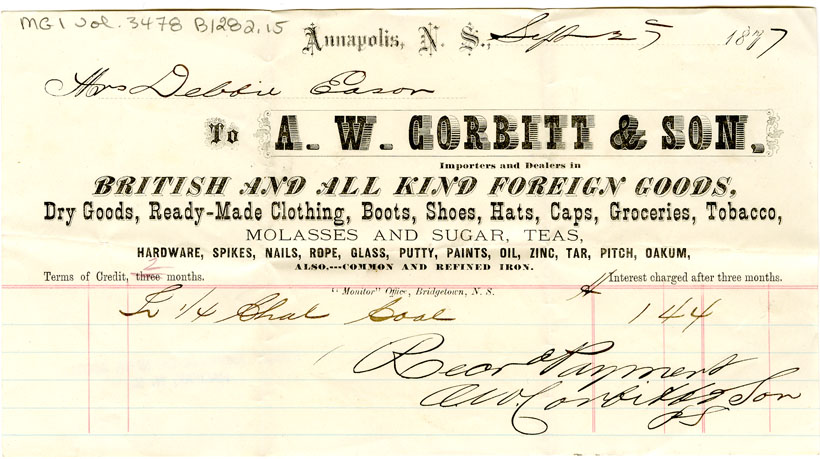 MG 1 vol. 3478 B1282.15
Annapolis, N. S., Sept 25 1877
Mrs Debbie Eason
To A. W. CORBITT & SON,
Importers and Dealers in
BRITISH AND ALL KIND FOREIGN GOODS,
Dry Goods, Ready-Made Clothing, Boots, Shoes, Hats, Caps, Groceries, Tobacco,
MOLASSES AND SUGAR, TEAS,
HARDWARE, SPIKES, NAILS, ROPE, GLASS, PUTTY, PAINTS, OIL, ZINC, TAR, PITCH, OAKUM,
ALSO,---COMMON AND REFINED IRON.
Terms of Credit, three 2 months. Interest charged after three months.
"Monitor" Office, Bridgetown, N. S.
1/4 Chal Coal 1 44
Recd Payment
AW. Corbitt & Son